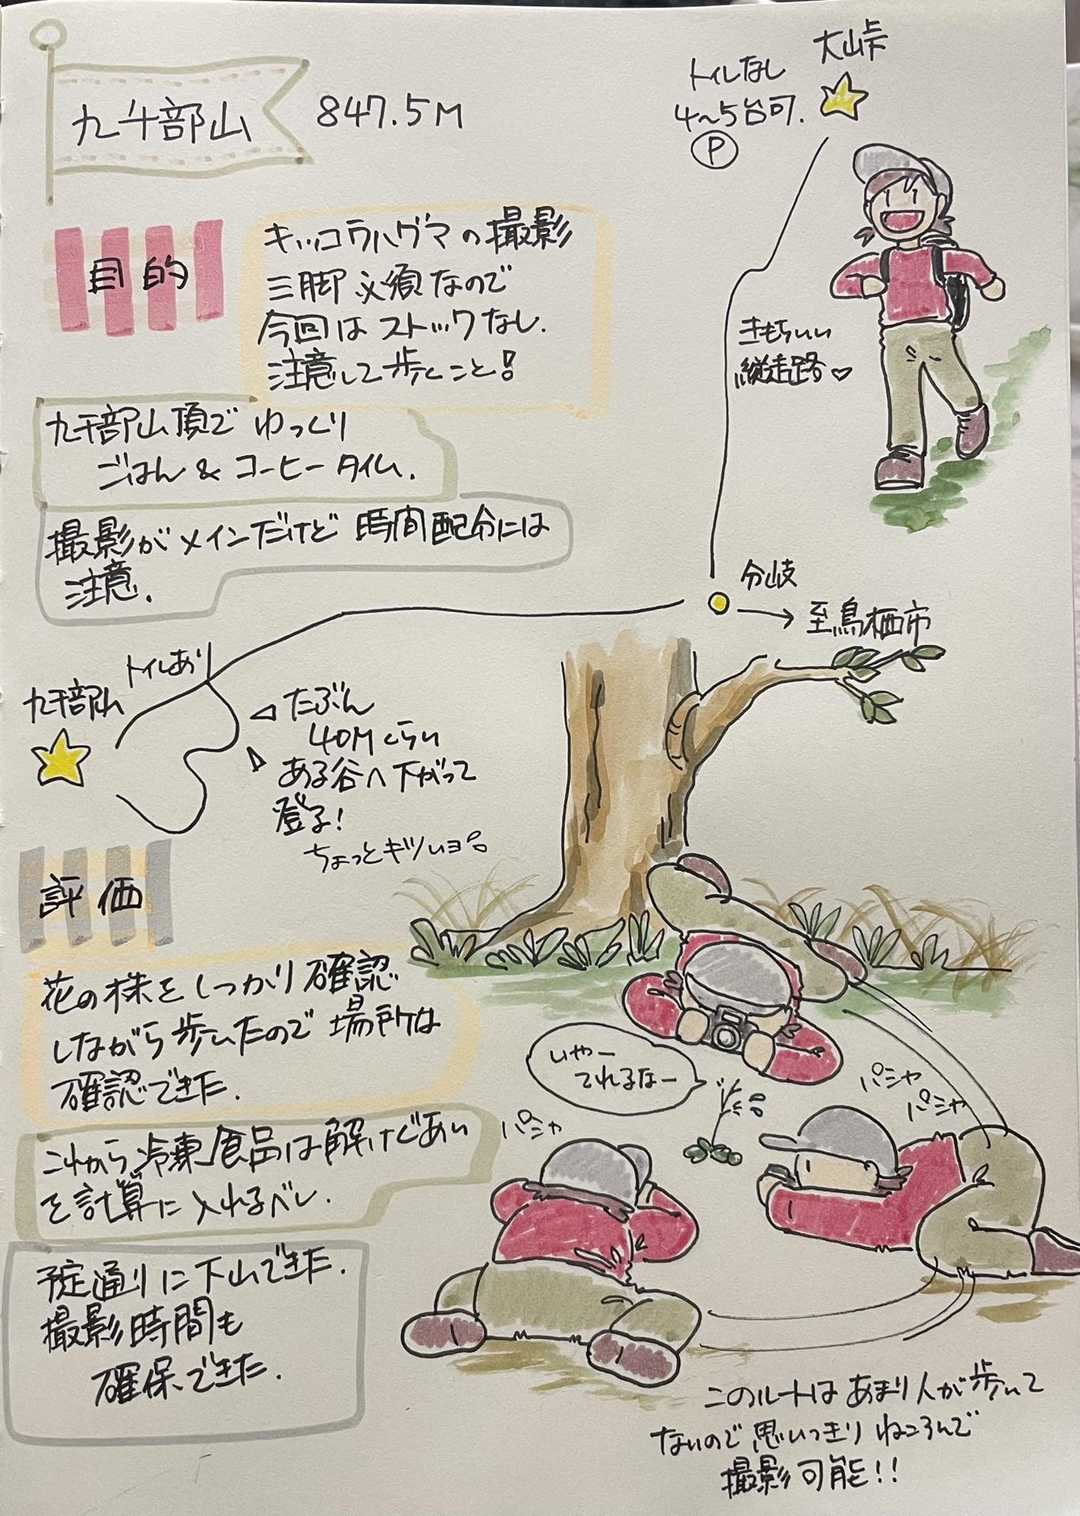 九千部山 847.5M
大山峠
トイレなし
4〜5台可.
P
目的
キッコウハグマの撮影
三脚必須なので
今回はストックなし.
注意して歩くこと!
九千部山頂でゆっくり
ごはん&コーヒータイム.
撮影がメインだけど時間配分には
注意.
きもちいい
縦走路♡
分岐
→至鳥栖市
トイレあり
九千部山
たぶん
40Mくらい
ある谷へ下がって
登る!
ちょっとキツいヨ
評価
花の株をしっかり確認
しながら歩いたので場所は
確認できた.
これから冷凍食品は解けぐあい
を計算に入れるべし.
予定通りに下山できた.
撮影時間も
確保できた.
いやー
てれるなー
パシャ
パシャ
パシャ
このルートはあまり人が歩いて
ないので思いっきりねころんで
撮影可能!!